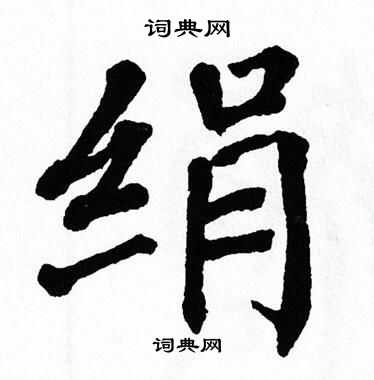 词典网
绢
词典网